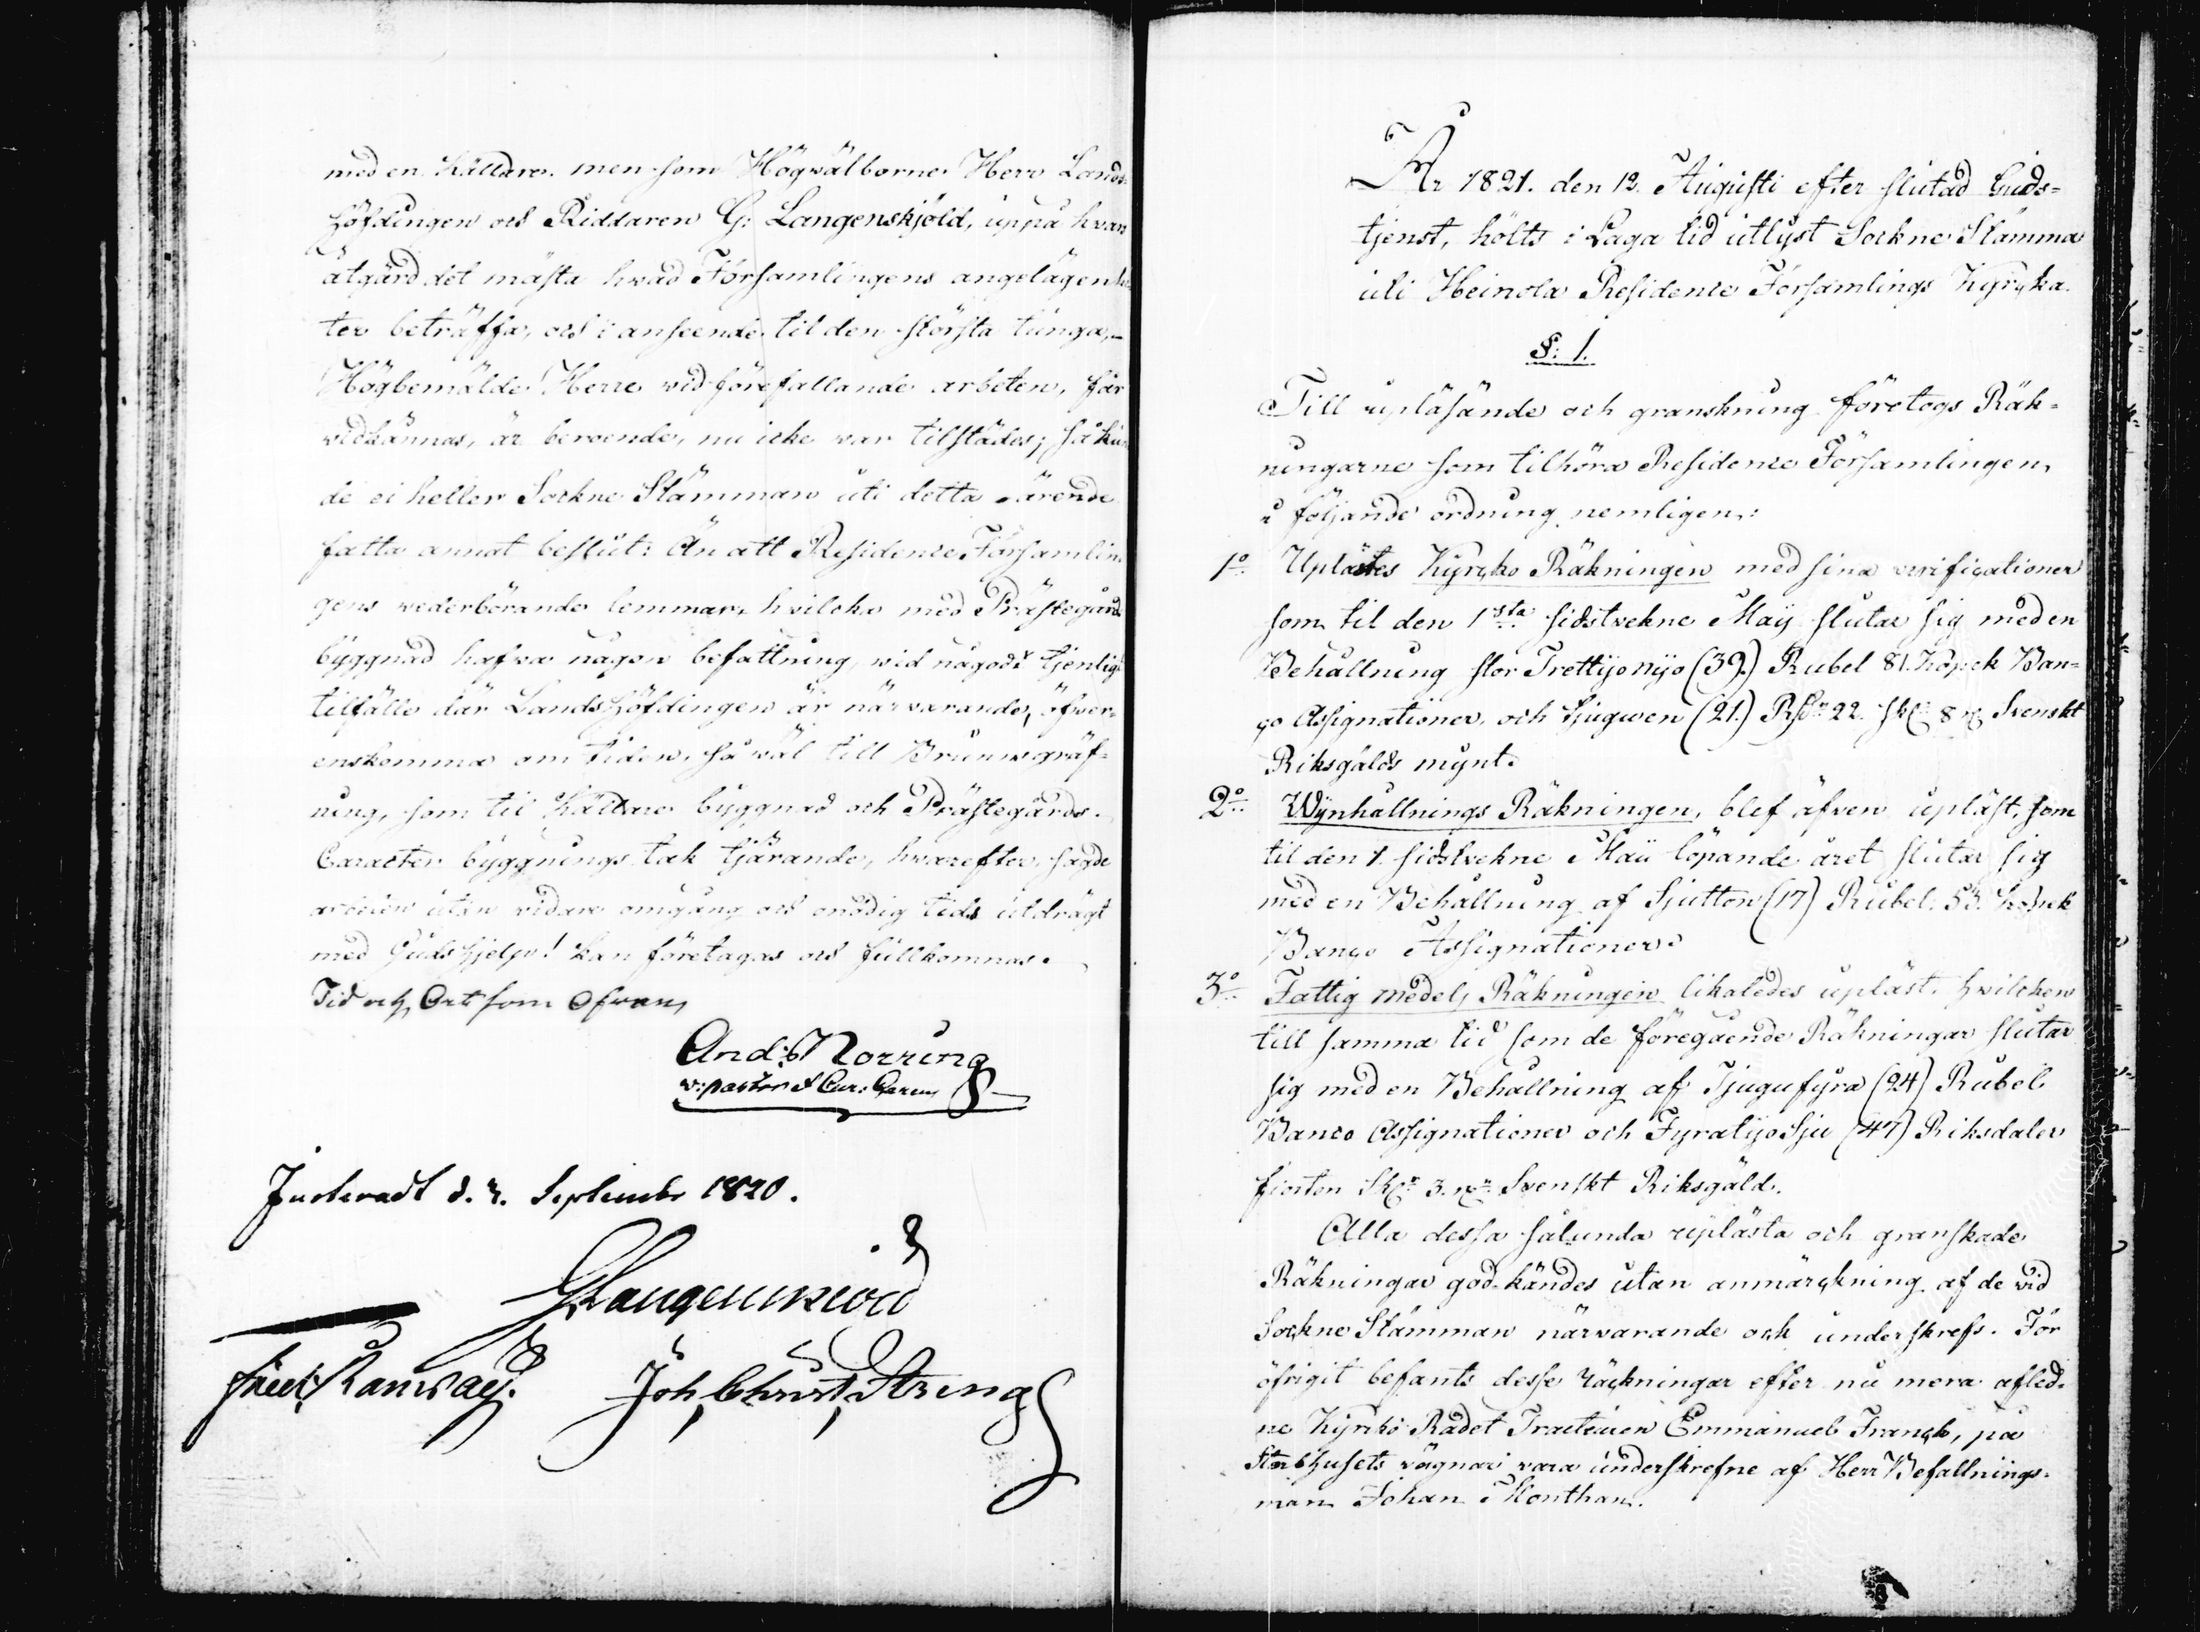 med en källare. men som Högvälborne Herr Lands-
höfdingen och Riddaren G: Langenskjöld, uppå hvars
åtgärd det mästa hvad Församlingens angelägenhe
ter beträffa, och i anseende til den största tunga,
Högbemälde Herre vid förefallande arbeten, får
vidkännas, är beroende, nu icke var tilstädes; så kun
de ei heller Sockne Stämman uti detta ärende
fatta annat beslut: Än att Residence Församlin
gens vederbörande lemmar, hvilcka med Prästegårds
byggnad hafva någon befattning, vid någodt tjenligt
tilfälle där Landshöfdingen är närvarande, öfver-
enskomma om tiden, så väl till Brunnsgräf-
ning, som til Kättare byggnad och Prästegårds
Caracters byggnings tak tjärande, hvarefter sagde
arbeten utan vidare omgång och onödig tids utdrägt
med Guds hjelp! kan företagas och fullkomnas.
Tid och Ort som Ofvan,
And: Norring
v: pastor & Cur: Garem
Justeradt d. 3. September 1820.
GLangenskiold
Joh, Christ, Streng
År 1821. den 12. Augusti efter slutad Guds-
tjenst, hölts i Laga tid utlyst Sockne Stämma
uti Heinola Residence Församlings Kyrcka.
§: 1.
Till upläsande och granskning företogs Räk-
ningarne som tilhöra Residence Församlingen,
i följande ordning nemligen:
1o Uplästes Kyrcko Räkningen med sina verificationer
som til den 1sta sidstvekne Maij slutar sig med en
Behållning stor Trettijo nijo (39.) Rubel 81. Kopek Ban-
co Assignationer, och Tjugoen (21.) Rsdr 22. sk: 8 rs Svenskt
Riksgälds mynt.
2o Wynhållnings Räkningen, blef äfven upläst, som
til den 1. sidstvekne Maii löpande året slutar sig
med en Behållning af Sjutton (17) Rubel. 53. Kopek
Banco Assignationer.
3o Fattig medels Räkningen likaledes upläst, hvilcken
till samma tid som de föregående Räkningar slutar
sig med en Behållning af Tjugufyra (24) Rubel
Banco Assignationer och Fyratijo Sju (47) Riksdaler
fjorton Sk: 3. rs Svenskt Riksgäld.
Alla dessa sålunda uplästa och granskade
Räkningar god-kändes utan anmärckning af de vid
Sockne Stämman närvarande och underskrefs. För
öfrigit befants desse räckningar efter nu mera afled-
ne Kyrcko Rådet Tracteuren Emmanuel Franck, på
Sterbhusets vägnar vara underskrefne af Herr Befallnings-
man Johan Monthan.